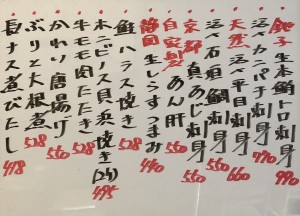 銚子生本鮪トロ刺身 990
活〆カンパチ刺身 770
天然活〆平目刺身 660
活〆石垣鯛刺身 550
京都真あじ刺身 550
自家製あん肝 550
静岡生しらすつまみ 440
鮭ハラス焼き 528
本ニビノス貝浜焼き(2ケ) 495
牛モモ肉たたき 528
かわり唐揚げ 550
ぶりと大根煮 528
長ナス煮びたし 418